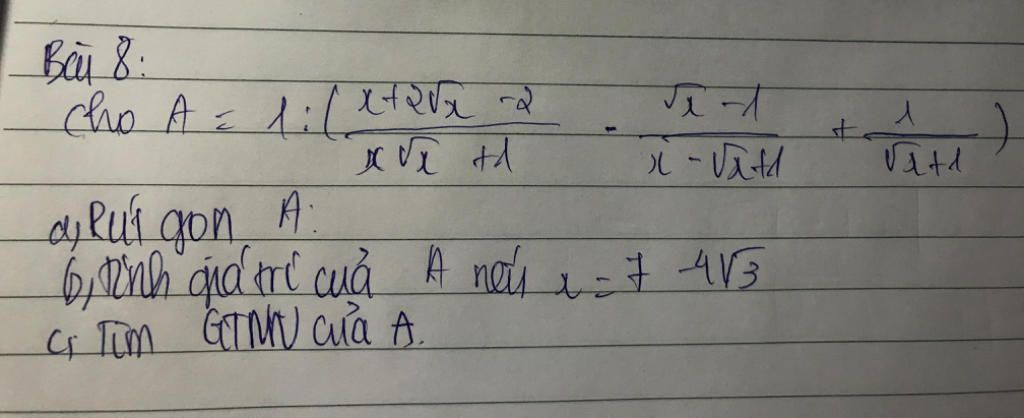 Bài 8:
Cho A = 1 : ( (x+2√x -2)/(x√x +1) - (√x -1)/(x-√x+1) + 1/(√x+1) )
a, Rút gọn A:
b, tính giá trí cuả A nếu x = 7 -4√3
c, Tìm GTNN cửa A.